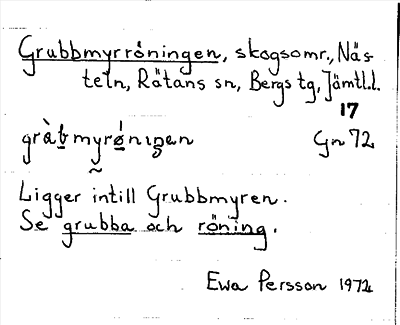 Grubbmyrröningen, skogsomr., Näs-
teln, Rätans sn, Bergs tg, Jämtl.l.
17
gràbmyrǿniŋen Gn 72
Ligger intill Grubbmyren.
Se grubba och röning.
Ewa Persson 1972